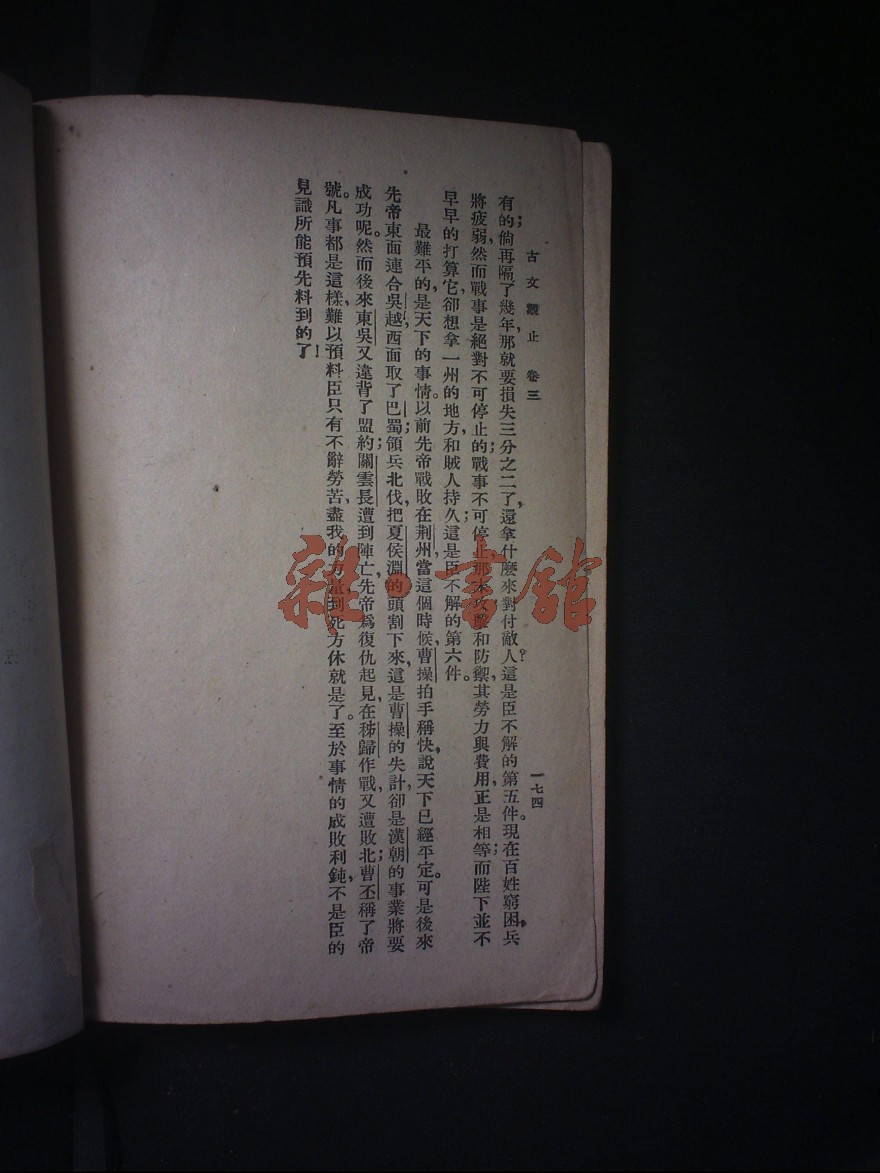 古文觀止 卷三 一七四
有的;倘再隔了幾年,那就要損失三分之二了,還拿什麼來對付敵人?這是臣不解的第五件。現在百姓窮困,兵
將疲弱,然而戰事是絕對不可停止的;戰事不可停止,那末攻擊和防禦,其勞力與費用,正是相等;而陛下並不
早早的打算它,卻想拿一州的地方,和賊人持久;這是臣不解的第六件。
最難平的,是天下的事情。以前先帝戰敗在荆州,當這個時候,曹操拍手稱快,說天下已經平定。可是後來
先帝東面連合吳越,西面取了巴蜀;領兵北伐,把夏侯淵的頭割下來,這是曹操的失計,卻是漢朝的事業將要
成功呢。然而後來東吳又違背了盟約;關雲長遭到陣亡,先帝爲復仇起見,在秭歸作戰,又遭敗北;曹丕稱了帝
號。凡事都是這樣,難以預料。臣只有不辭勞苦,盡我的力量,到死方休就是了。至於事情的成敗利鈍,不是臣的
見識所能預先料到的了!
雜·書館